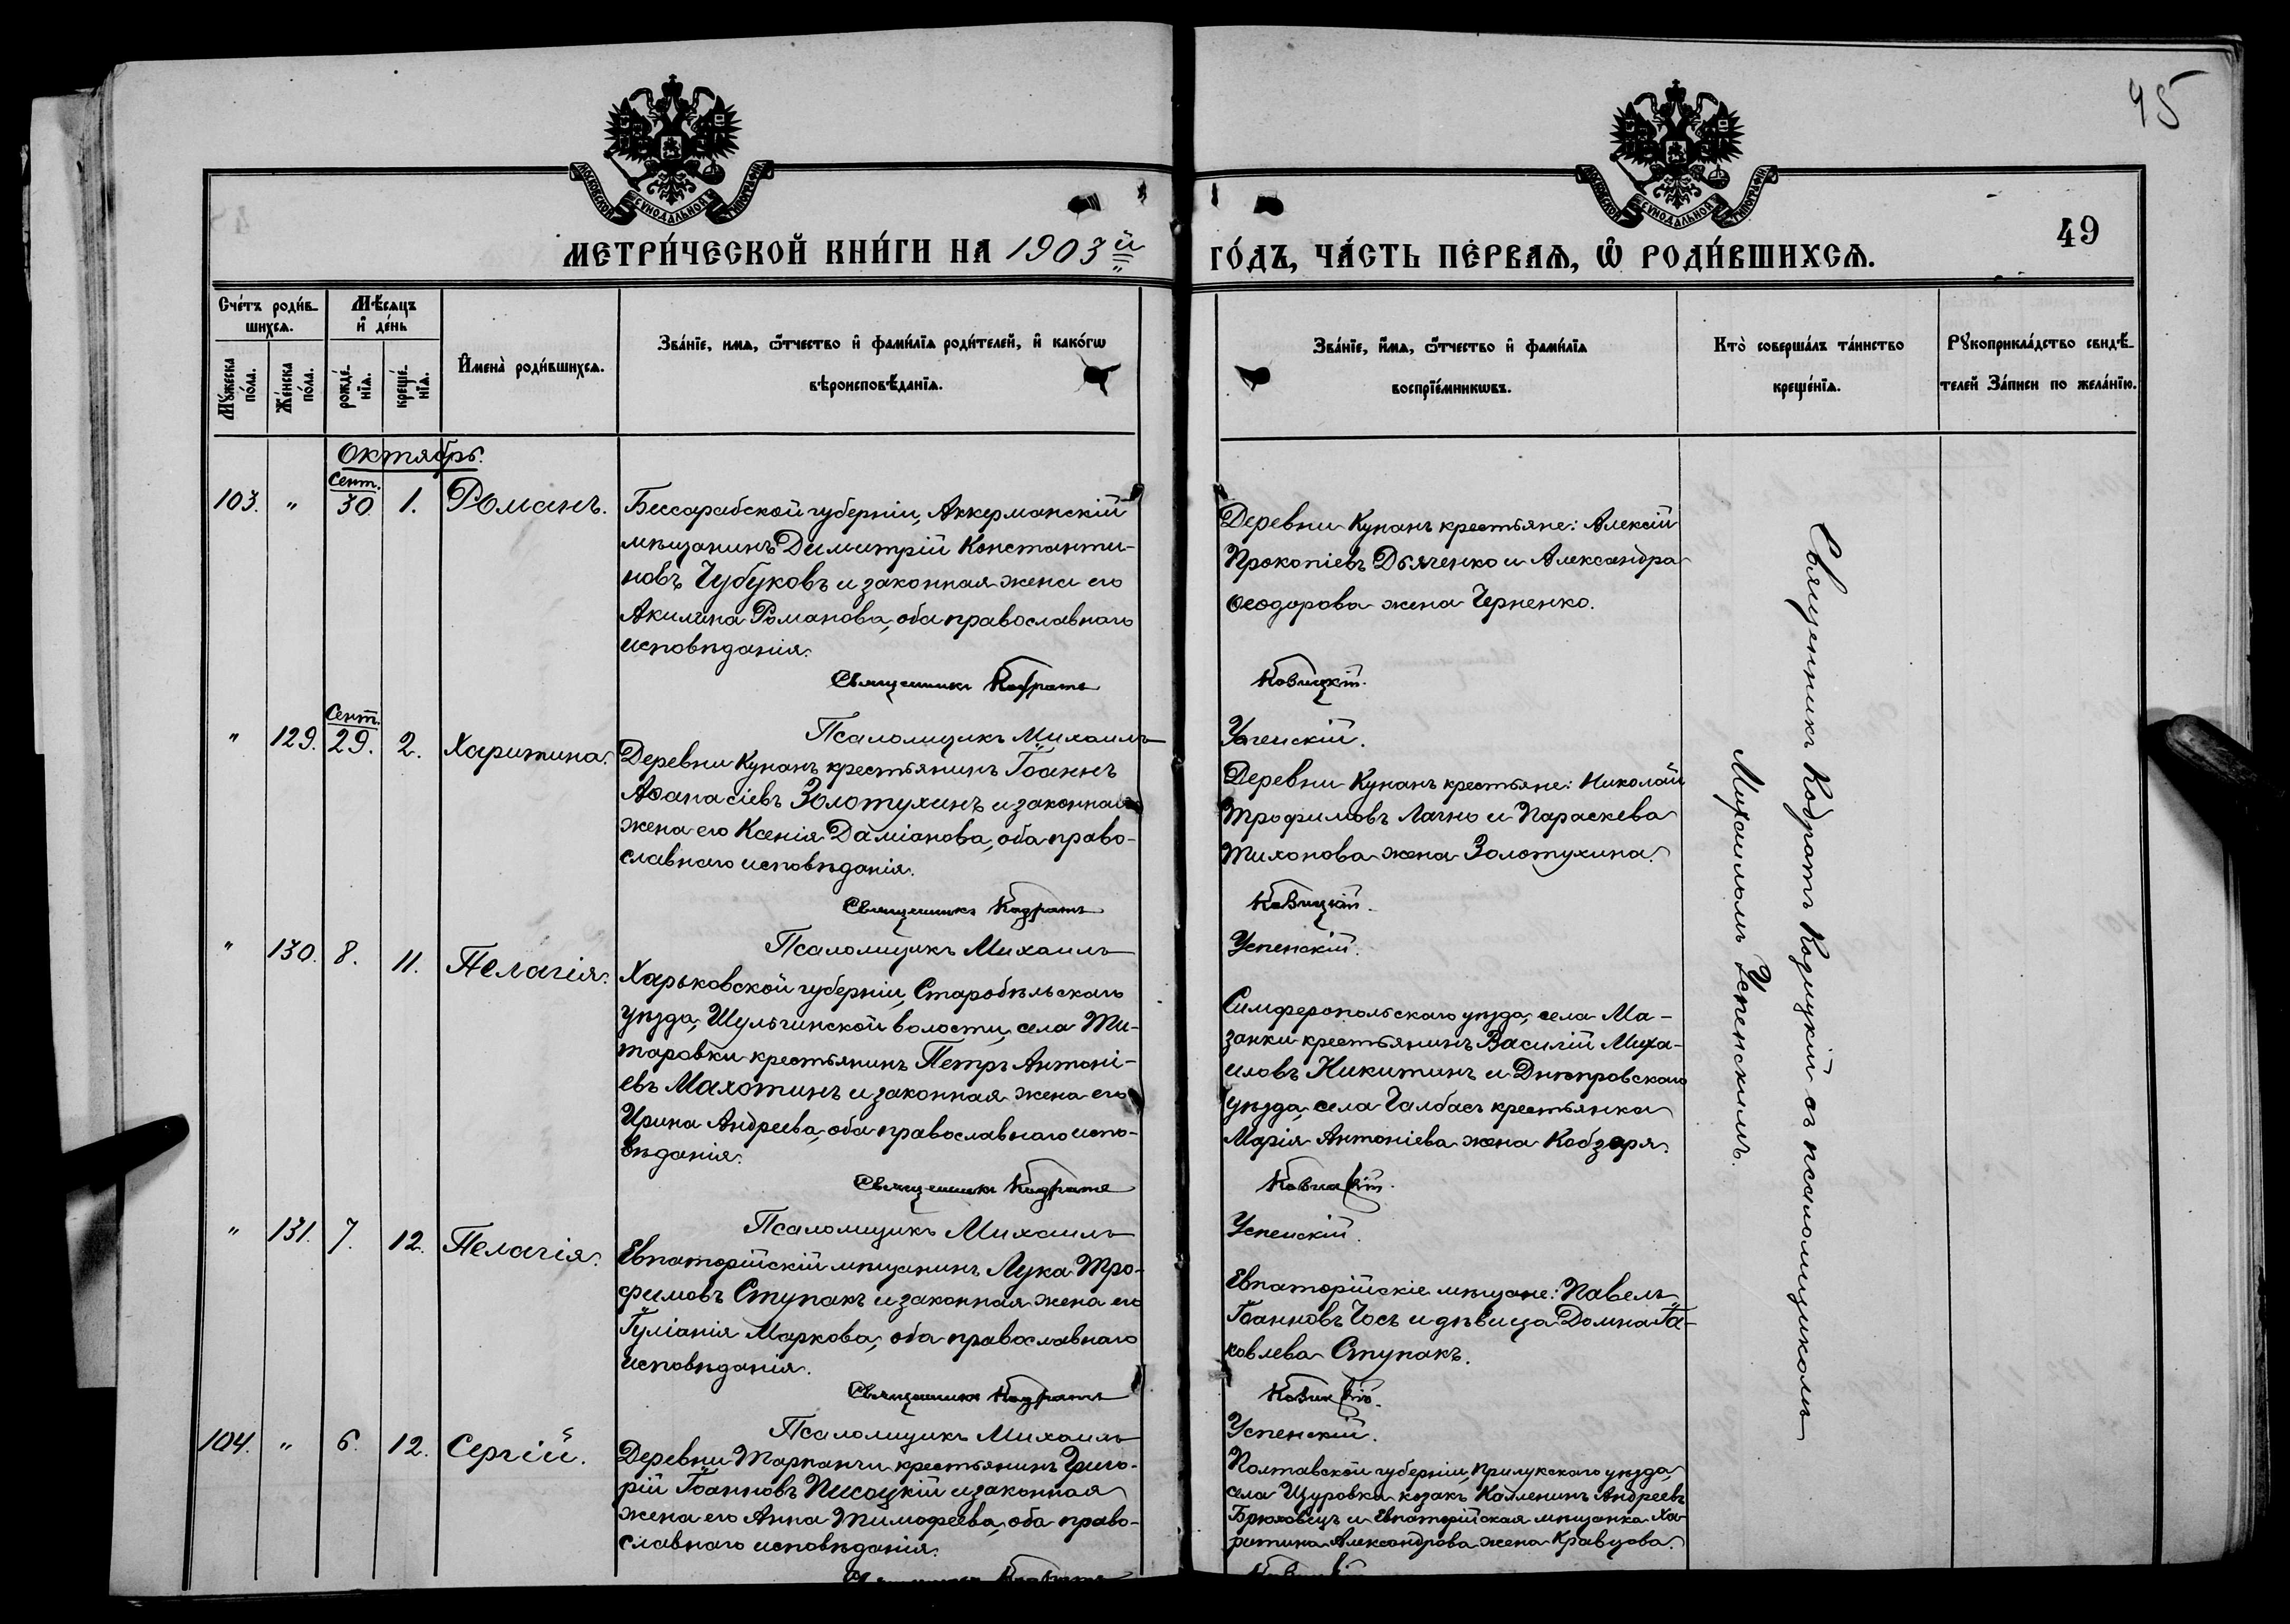 45
МОСКОВСКОЙ СѴНОДАЛЬНОЙ ТИПОГРАФІИ
МОСКОВСКОЙ СѴНОДАЛЬНОЙ ТИПОГРАФІИ
МЕТРИ́ЧЕСКОЙ КНИ́ГИ НА 1903й
ГО́ДЪ, ЧА́СТЬ ПЕ́РВАѦ, Ѽ РОДИ́ВШИХСѦ.
49
Сче́тъ роди́в-
шихсѧ.
Мꙋ́жеска по́ла.
Же́нска по́ла.
Мѣ́сѧцъ
и҆ де́нь
рожде́-
нїѧ.
креще́-
нїѧ.
И҆мена̀ роди́вшихсѧ.
Зва́нїе, имѧ, ѻ҆́тчество и҆ фами́лїѧ роди́телей, и҆ како́гѡ
вѣроисповѣ́данїѧ.
Зва́нїе, и҆́мѧ, ѻ҆́тчество и҆ фами́лїѧ
воспрїе́мникѡвъ.
Кто̀ соверша́лъ та́инство
креще́нїѧ.
Рꙋкоприкла́дство свидѣ́-
телей За́писи по жела́нїю.
Октябрь.
103. " Сент. 30 1. Романъ.
Бессарабской губерніи, Аккерманскій
мѣщанинъ Димитрій Константи-
новъ Чубуковъ и законная жена его
Акилина Романова, оба православнаго
исповѣданія.
Священникъ Кодратъ
Псаломщикъ Михаилъ
Деревни Кунанъ крестьяне: Алексій
Прокопіевъ Дьяченко и Александра
Ѳеодорова жена Черненко.
Успенскій.
" 129. Сент. 29. 2. Харитина.
Деревни Кунанъ крестьянинъ Іоаннъ
Аѳанасіевъ Золотухинъ и законная
жена его Ксенія Даміанова, оба право-
славнаго исповѣданія.
Священникъ Кодратъ
Псаломщикъ Михаилъ
Деревни Кунанъ крестьяне: Николай
Трофимовъ Лагно и Параскева
Тихонова жена Золотухина.
Успенскій.
" 130. 8. 11. Пелагія.
Харьковской губерніи, Старобѣльскаго
уѣзда, Шульгинской волости, села Ти-
таровки крестьянинъ Петръ Антоні-
евъ Махотинъ и законная жена его
Ирина Андреева, оба православнаго испо-
вѣданія.
Священникъ Кодратъ
Псаломщикъ Михаилъ
Симферопольскаго уѣзда, села Ма-
занки крестьянинъ Василій Миха-
иловъ Никитинъ и Днѣпровскаго
уѣзда, села Чалбасъ крестьянка
Марія Антоніева жена Кобзаря.
Успенскій.
" 131. 7. 12. Пелагія.
Евпаторійскій мѣщанинъ Лука Тро-
фимовъ Ступакъ и законная жена его
Іуліанія Маркова, оба православнаго
исповѣданія.
Священникъ Кодратъ
Псаломщикъ Михаилъ
Евпаторійскіе мѣщане: Павелъ
Іоанновъ Чосъ и дѣвица Домна Іа-
ковлева Ступакъ.
Успенскій.
104. " 6. 12. Сергій.
Деревни Тарпанчи крестьянинъ Григо-
рій Іоанновъ Писоцкій и законная
жена его Анна Тимофеева, оба право-
славнаго исповѣданія.
Полтавской губерніи, Прилукскаго уѣзда,
села Щуровка козакъ Каллиникъ Андреевъ
Брюховецъ и Евпаторійская мѣщанка Ха-
ритина Александрова жена Кравцова.
Священникъ Кодратъ съ псаломщикомъ
Михаиломъ Успенскимъ.